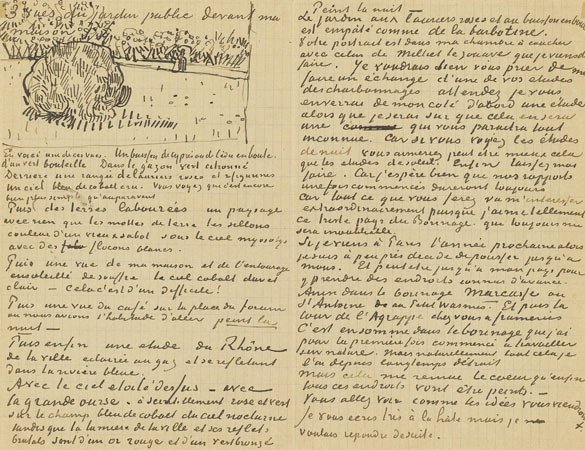 3 vues du jardin public devant ma
maison
En voici une de ces vues. Un buisson de cyprès ou de boule
d'un vert bouteille Dans le gazon vert citronné
Derriere une rangée de lauriers roses et
un ciel bleu de cobalt cru. Vous voyez que c'est encore
bien plus simple qu'auparavant
Puis des terres labourées un paysage
avec rien que les mottes de terre les sillons
couleur d'un vieux sabot sous le ciel myosotys
avec des flocons blancs.
Puis une vue de ma maison et de l'entourage
ensoleillé de souffre le ciel cobalt dur et
clair – cela c'est d'un difficile!
Puis une vue du café sur la place du forum
où nous avions l'habitude d'aller peint la
nuit –
Puis enfin une étude du Rhône
de la ville éclairée au gaz et se reflétant
dans la rivière bleue.
Avec le ciel étoilé dessus – avec
la grande ourse – à scintillement rose et vert
sur le champ bleu de cobalt du ciel nocturne
tandis que la lumière de la ville et ses reflets
brutals sont d'un or rouge et d'un vert bronzé
Peint la nuit
Le jardin aux lauriers roses et au buisson en boule
est empaté comme de la barbotine.
Votre portrait est dans ma chambre à coucher
avec celui de Milliet le zouave que je viens de
faire. Je voudrais bien vous prier de me
faire un échange d'une de vos études
des charbonnages attendez je vous
enverrai de mon côté d'abord une étude
alors que je serai sur que cela en sera
une qui vous paraitra tout
inconnue. Car si vous voyez les études
de nuit vous aimerez peut être mieux cela
que les études de soleil. Enfin laissez moi
faire. Car j'espère bien que nos rapports
une fois commencés dureront toujours
car tout ce que vous ferez va m'intéresser
extraordinairement puisque j'aime tellement
ce triste pays du Borinage qui toujours me
sera inoubliable
Si je viens à Paris l'année prochaine alors
je suis à peu près décidé de pousser jusqu'à
mons. Et peut etre jusqu'à mon pays pour
y prendre des endroits connus d'avance.
Ainsi dans le borinage Marcasse ou
St Antoine au Petit Wasmes. Et puis la
cour de l'Agrappe chez vous à frameries
C'est en somme dans le borinage que j'ai
pour la première fois commencé à travailler
sur nature. mais naturellement tout cela je
l'ai depuis longtemps détruit
mais cela me remue le coeur qu'enfin
tous ces endroits vont être peints. –
Vous allez voir comme les idées vous viendront
je vous écris très à la hâte mais je
voulais répondre de suite.